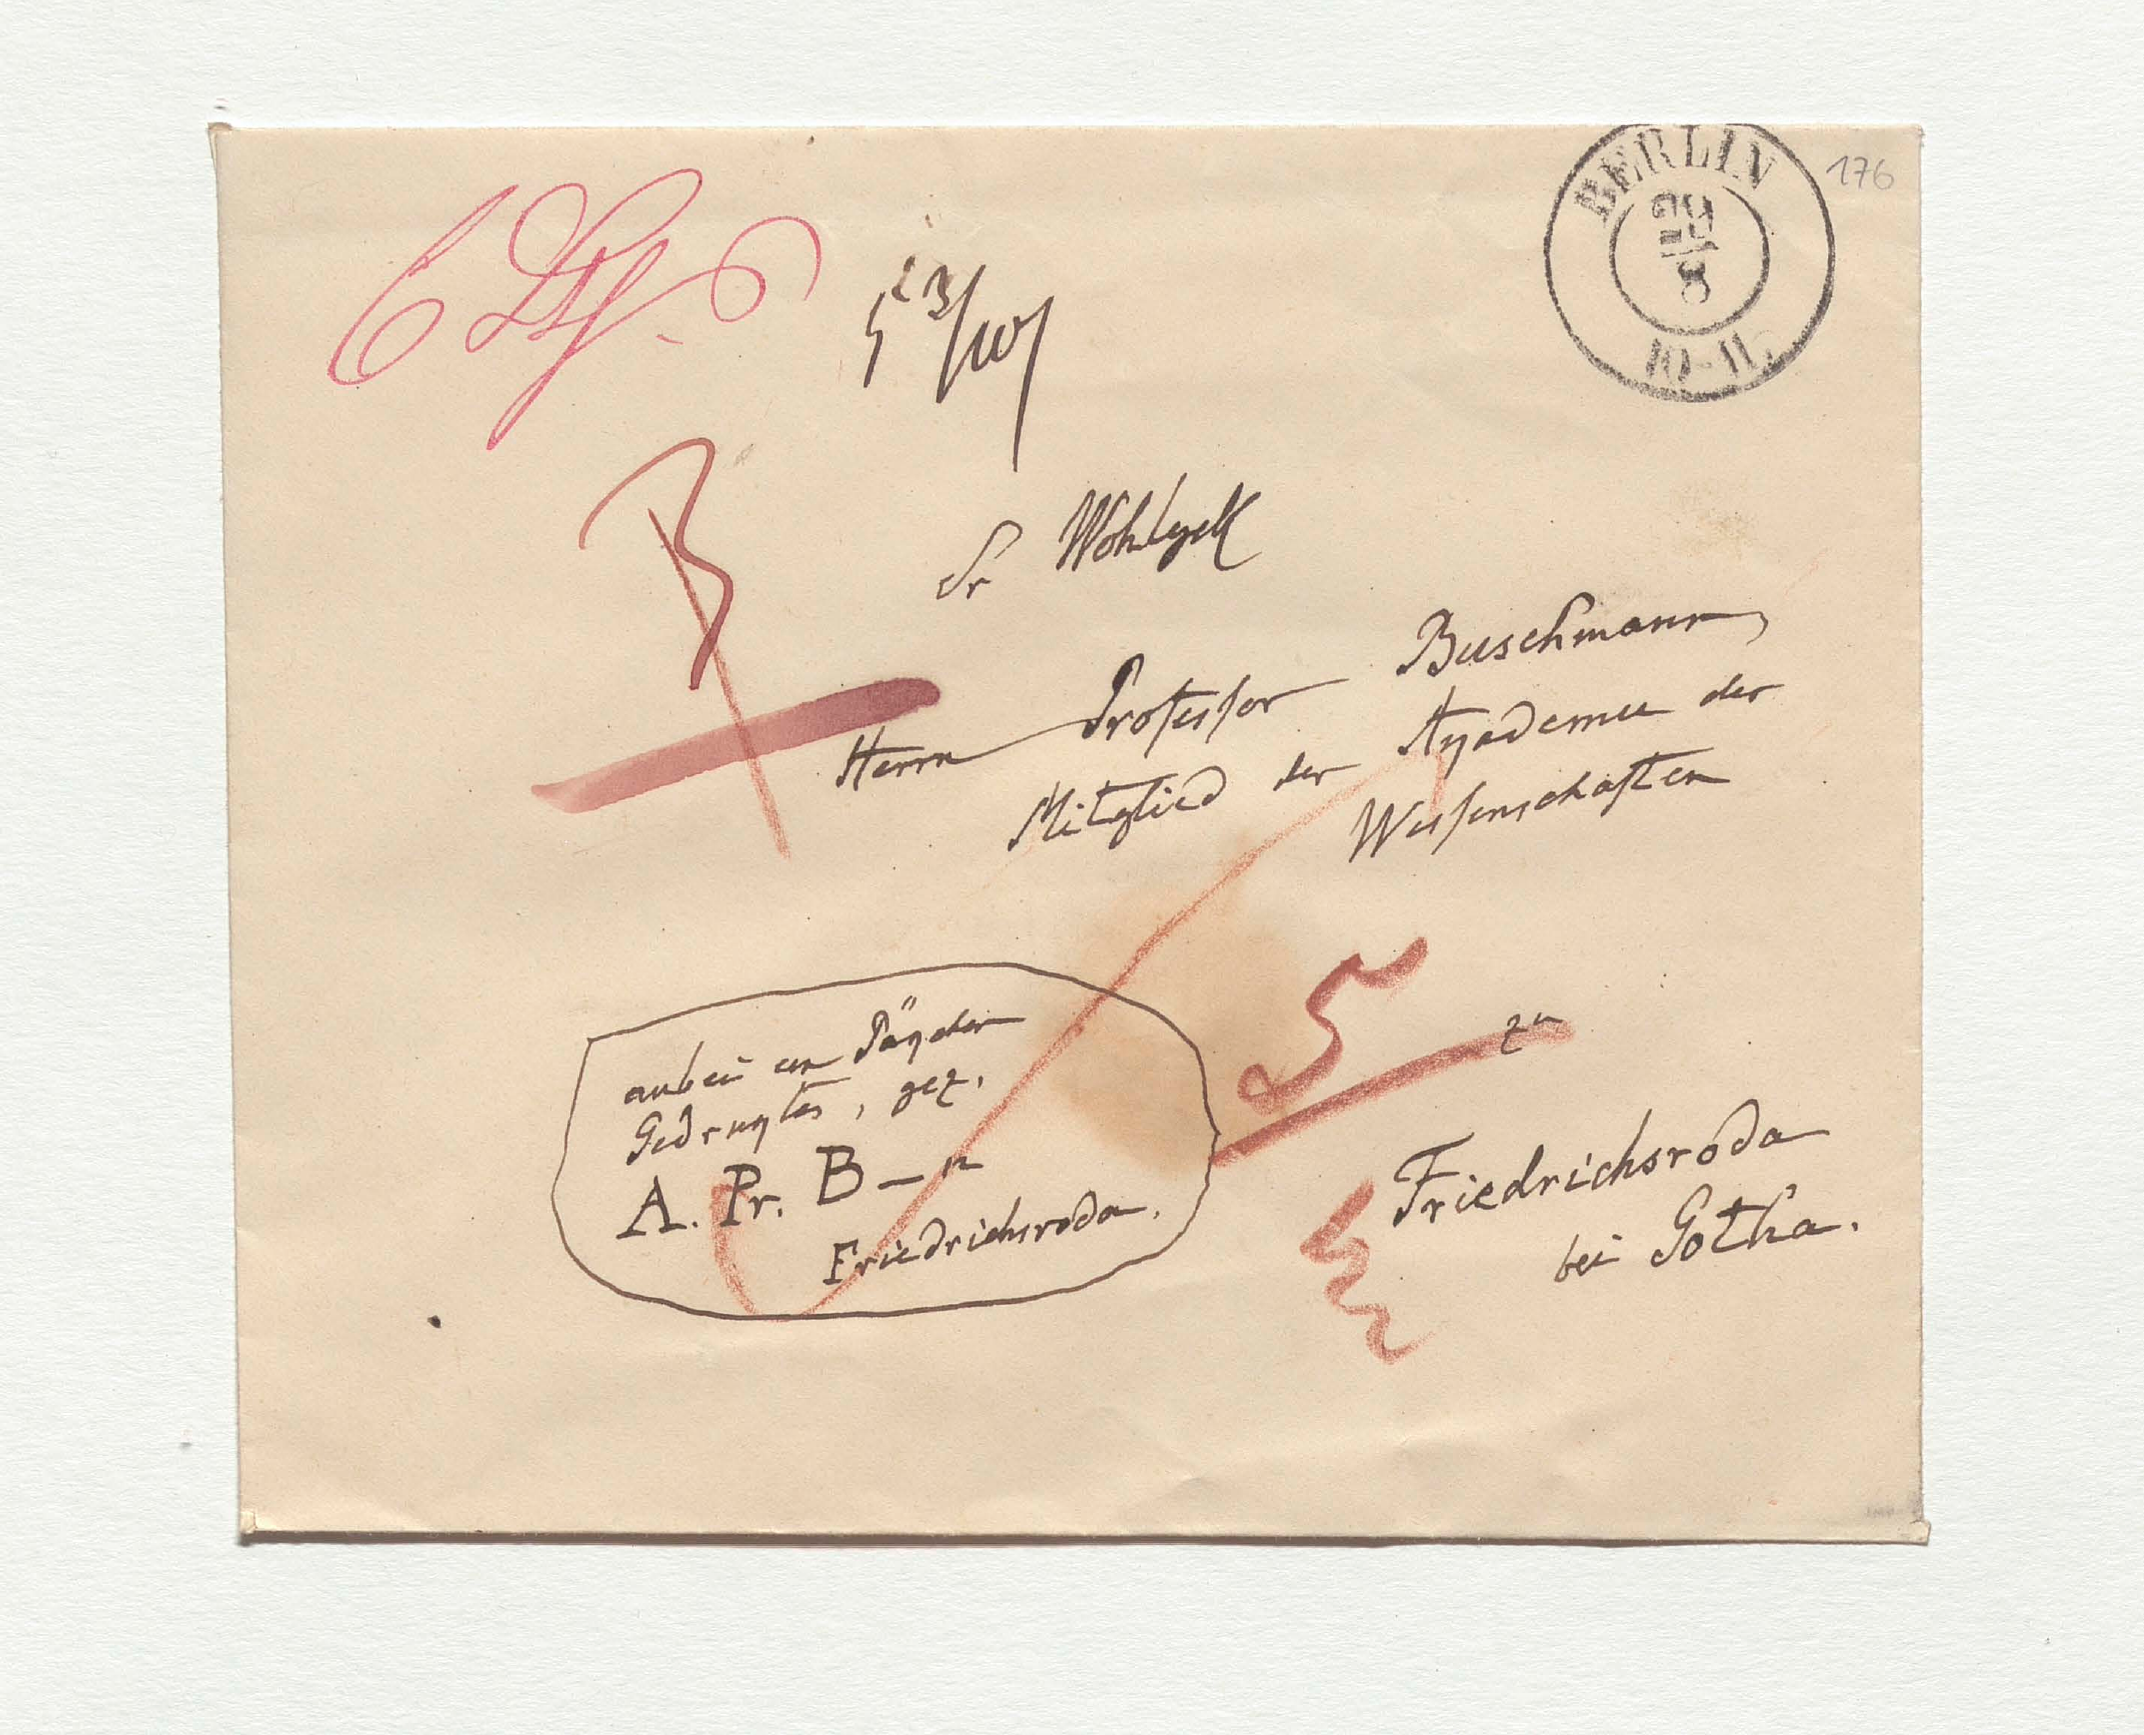 BERLIN
25
8
10-11.
176
Sr Wohlgeb
Herrn Professor Buschmann,
Mitglied der Akademie der
Wissenschaften
zu
Friedrichsroda
bei Gotha.
anbei ein Päckchen
Gedrucktes, gez.
A. Pr. B–n
Friedrichsroda.